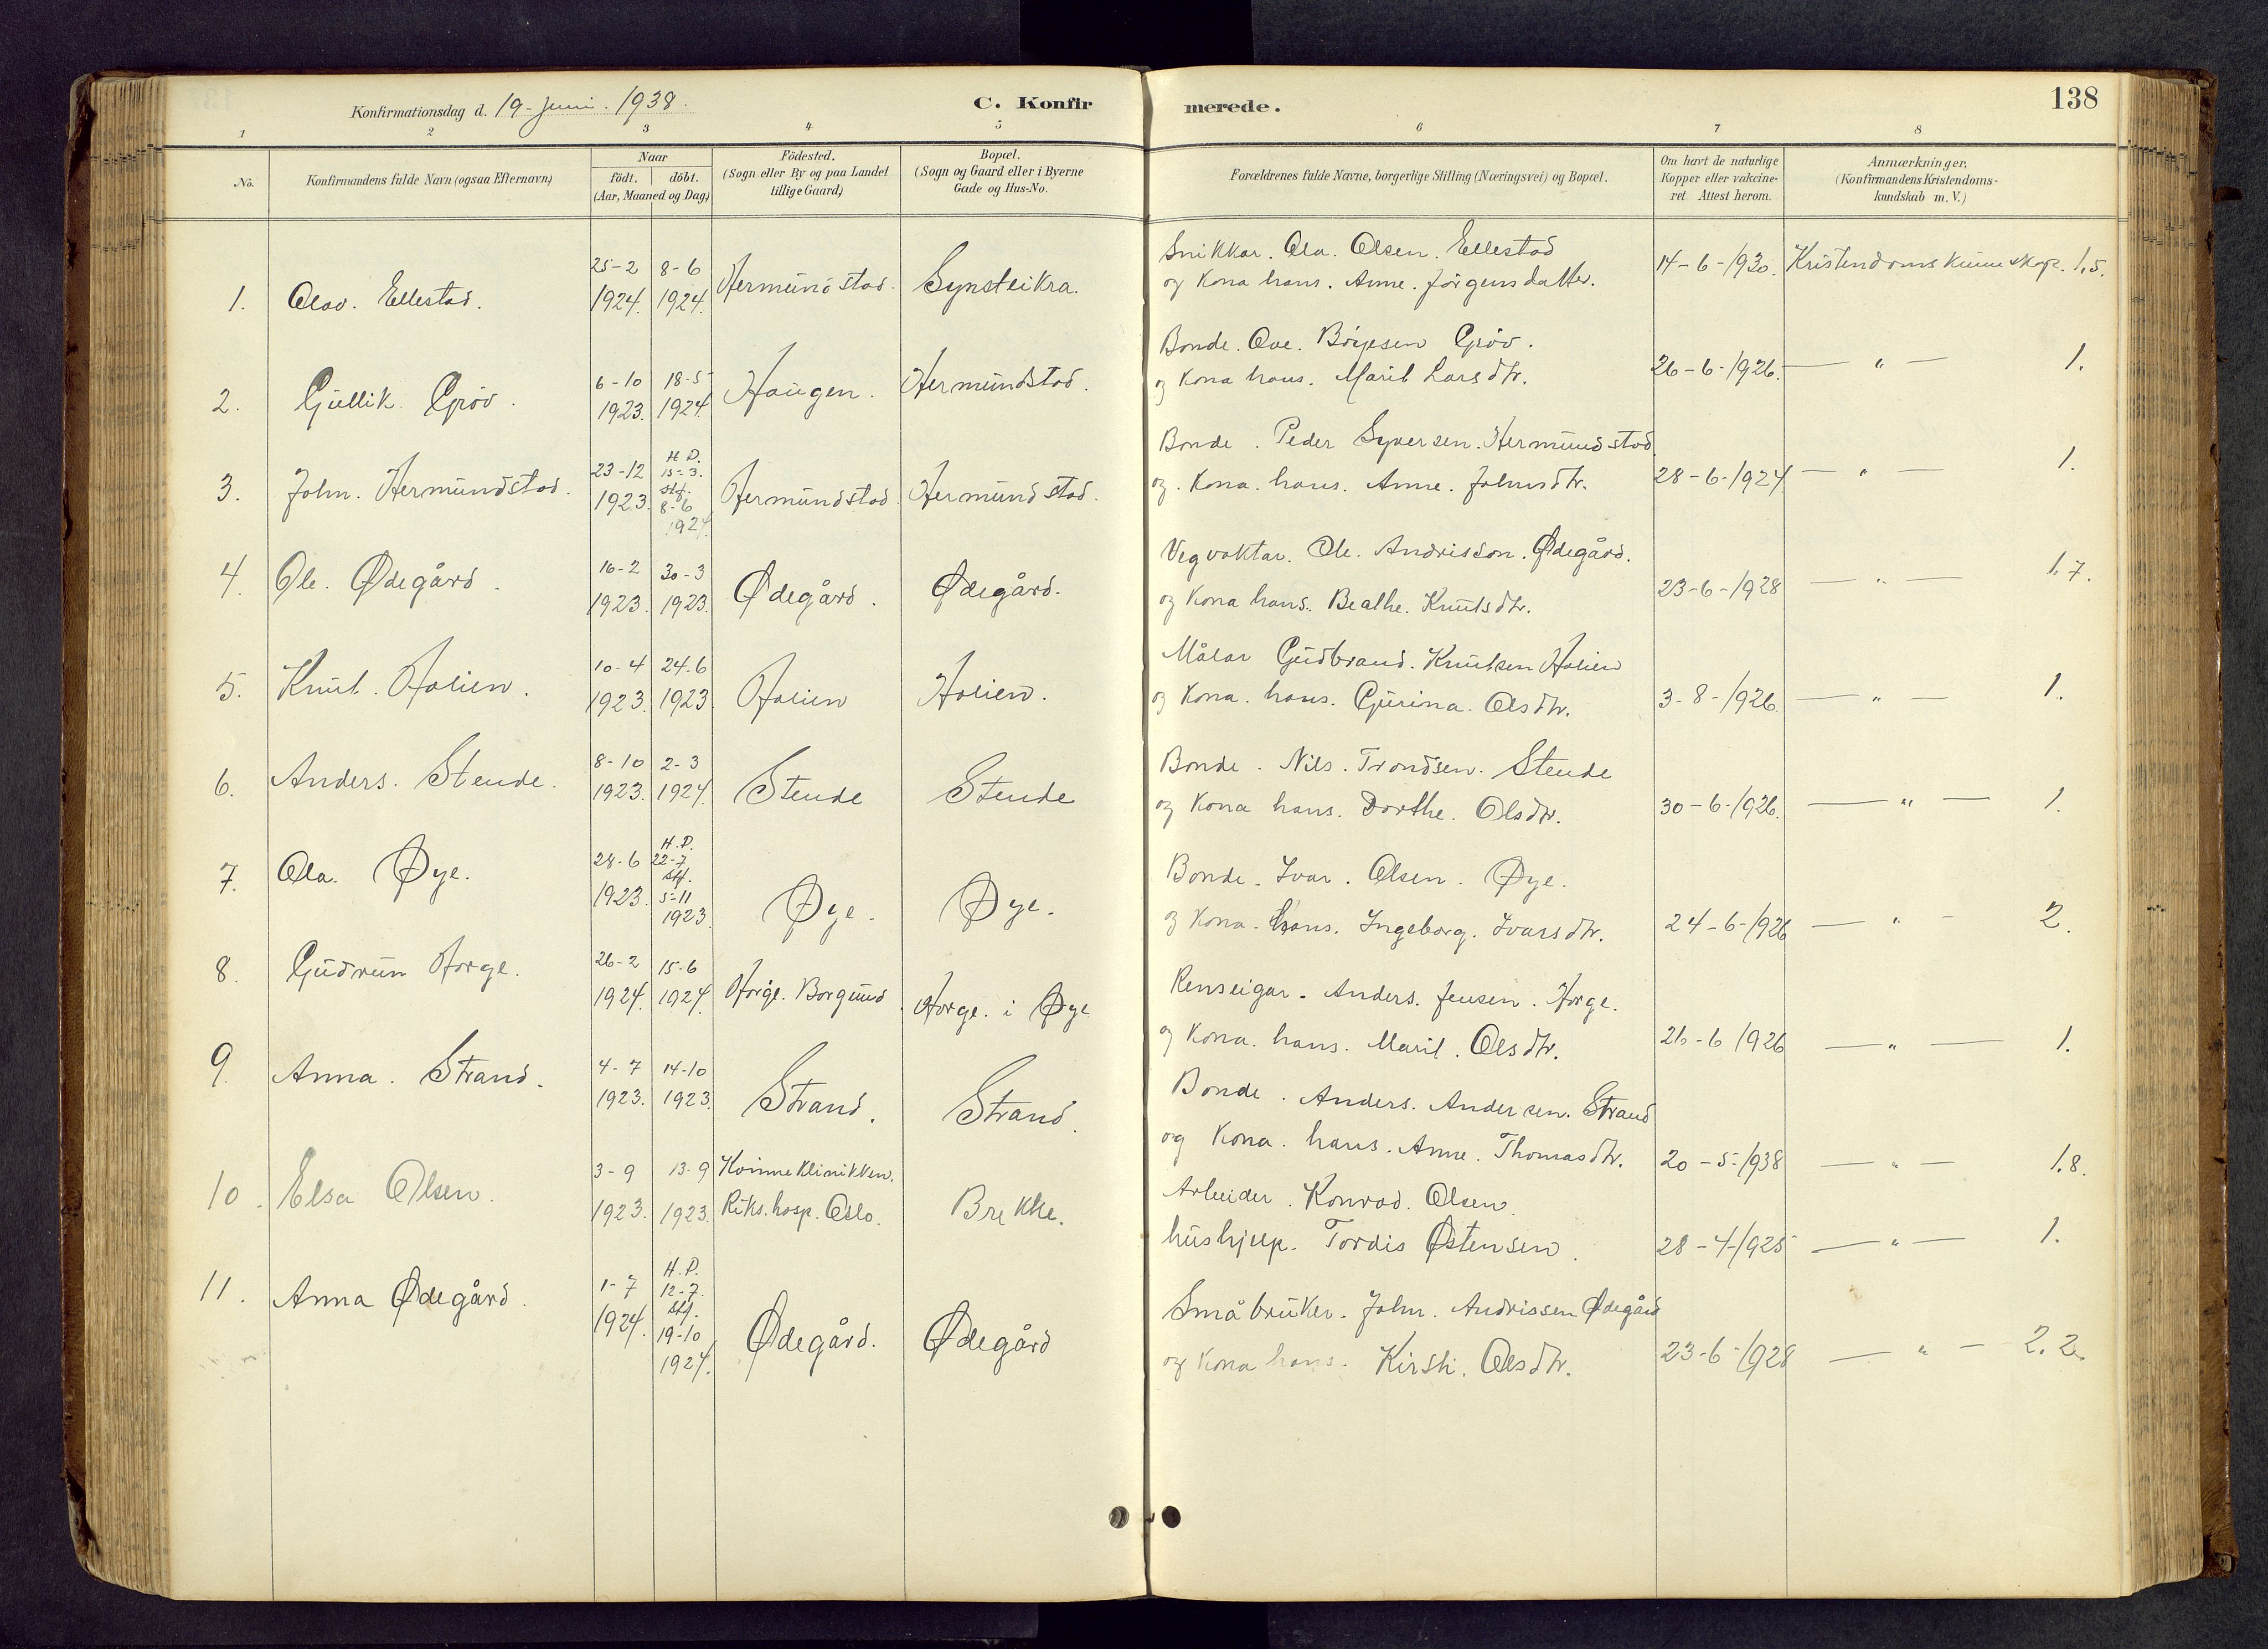 Konfirmationsdag d. 19-juni. 1938.
C. Konfirmerede.
138
1 2 3 4 5 6 7 8
No.
Konfirmandens fulde Navn (ogsaa Efternavn)
Naar
födt. döbt.
(Aar, Maaned og Dag)
Födested.
(Sogn eller By og paa Landet
tillige Gaard)
Bopæl.
(Sogn og Gaard eller i Byerne
Gade og Hus-No.
Forældrenes fulde Navne, borgerlige Stilling (Næringsvei) og Bopæl.
Om havt de naturlige
Kopper eller vakcine-
ret. Attest herom.
Anmærkninger,
(Konfirmandens Kristendoms-
kundskab m. V.)
1. Olav. Ellestad.
25-2 1924.
8-6 1924.
Hermundstad.
Synsteikra.
Snikkar. Ola. Olsen. Ellestad
og Kona hans. Anne. Jörgensdatter.
14-6-1930.
Kristendomskunnskap. 1,5.
2. Gullik. Gröv.
6-10 1923.
18-5 1924.
Haugen.
Hermundstad.
Bonde. Ove. Börgesen Gröv.
og Kona hans. Marit Larsdtr.
26-6-1926.
— " — 1.
3. John. Hermundstad.
23-12 1923.
H.D. 15-3. stf. 8-6 1924.
Hermundstad.
Hermundstad.
Bonde. Peder Syversen. Hermundstad
og. Kona. hans. Anne. Johnsdtr.
28-6-1924.
— " — 1.
4. Ole. Ødegård.
16-2 1923.
30-3 1923.
Ødegård.
Ødegård.
Vegvaktar. Ole. Andrisson. Ødegård.
og Kona hans. Beathe. Knutsdtr.
23-6-1928
— " — 1.7.
5. Knut. Holien.
10-4 1923.
24.6 1923.
Holien
Holien.
Målar Gudbrand. Knutsen Holien
og Kona. hans. Gurina. Olsdtr.
3-8-1926.
— " — 1.
6. Anders. Stende.
8-10 1923.
2-3 1924.
Stende
Stende
Bonde. Nils. Trondsen. Stende
og Kona hans. Dorthe. Olsdtr.
30-6-1926.
— " — 1.
7. Ola. Øye.
28-6 1923.
H.D. 22-7 stf. 5-11 1923
Øye.
Øye.
Bonde. Ivar. Olsen. Øye.
og Kona. hans. Ingeborg. Ivarsdtr.
24-6-1926
— " — 2.
8. Gudrun Horge.
26-2 1924.
15-6 1924.
Horge. Borgund.
Horge. i Øye
Renseigar. Anders. Jensen. Horge.
og Kona. hans. Marit. Olsdtr.
26-6 1926
— " — 1.
9. Anna. Strand.
4-7 1923.
14-10 1923.
Strand.
Strand.
Bonde. Anders. Andersen. Strand
og Kona. hans. Anne. Thomasdtr.
20-5-1938
— " — 1.8.
10. Elsa Olsen.
3-9 1923.
13-9 1923.
Kvinneklinikken.
Riks.hosp. Oslo.
Brekke.
Arbeider. Konrad. Olsen.
hushjelp. Tordis Østensen.
28-4-1925
— " — 1.
11. Anna Ødegård.
1-7 1924.
H.D. 12-7. stf. 19-10 1924.
Ødegård.
Ødegård
Småbruker. John. Andrissen Ødegård
og Kona hans. Kirsti. Olsdtr.
23-6-1928
— " — 2.2.